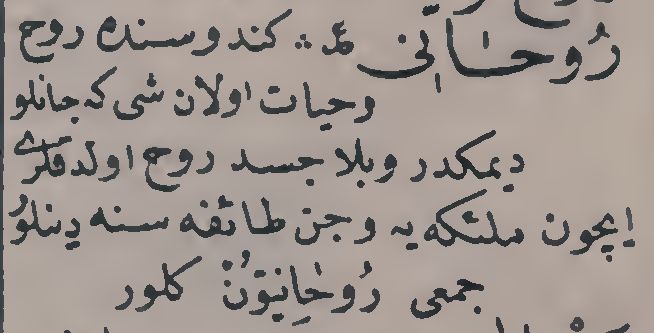 رُوحَانِی ع؞ کندوسنده روح
وحیات اولان شی که جانلو
دیمکدر وبلا جسد روح اولدقلری
ایچون ملئکه یه وجن طائفه سنه دینلور
جمعی رُوحَانِیّونْ کلور